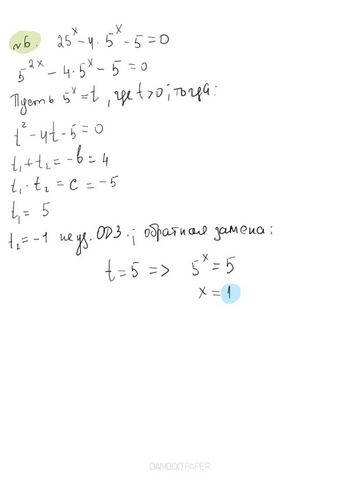 №6. 25ˣ-4·5ˣ-5=0
5²ˣ-4·5ˣ-5=0
Пусть 5ˣ=t, где t>0; тогда:
t²-4t-5=0
t₁+t₂=-b=4
t₁·t₂=c=-5
t₁=5
t₂=-1 не уд. ОДЗ.; обратная замена:
t=5 => 5ˣ=5
x=1
BAMBOO PAPER